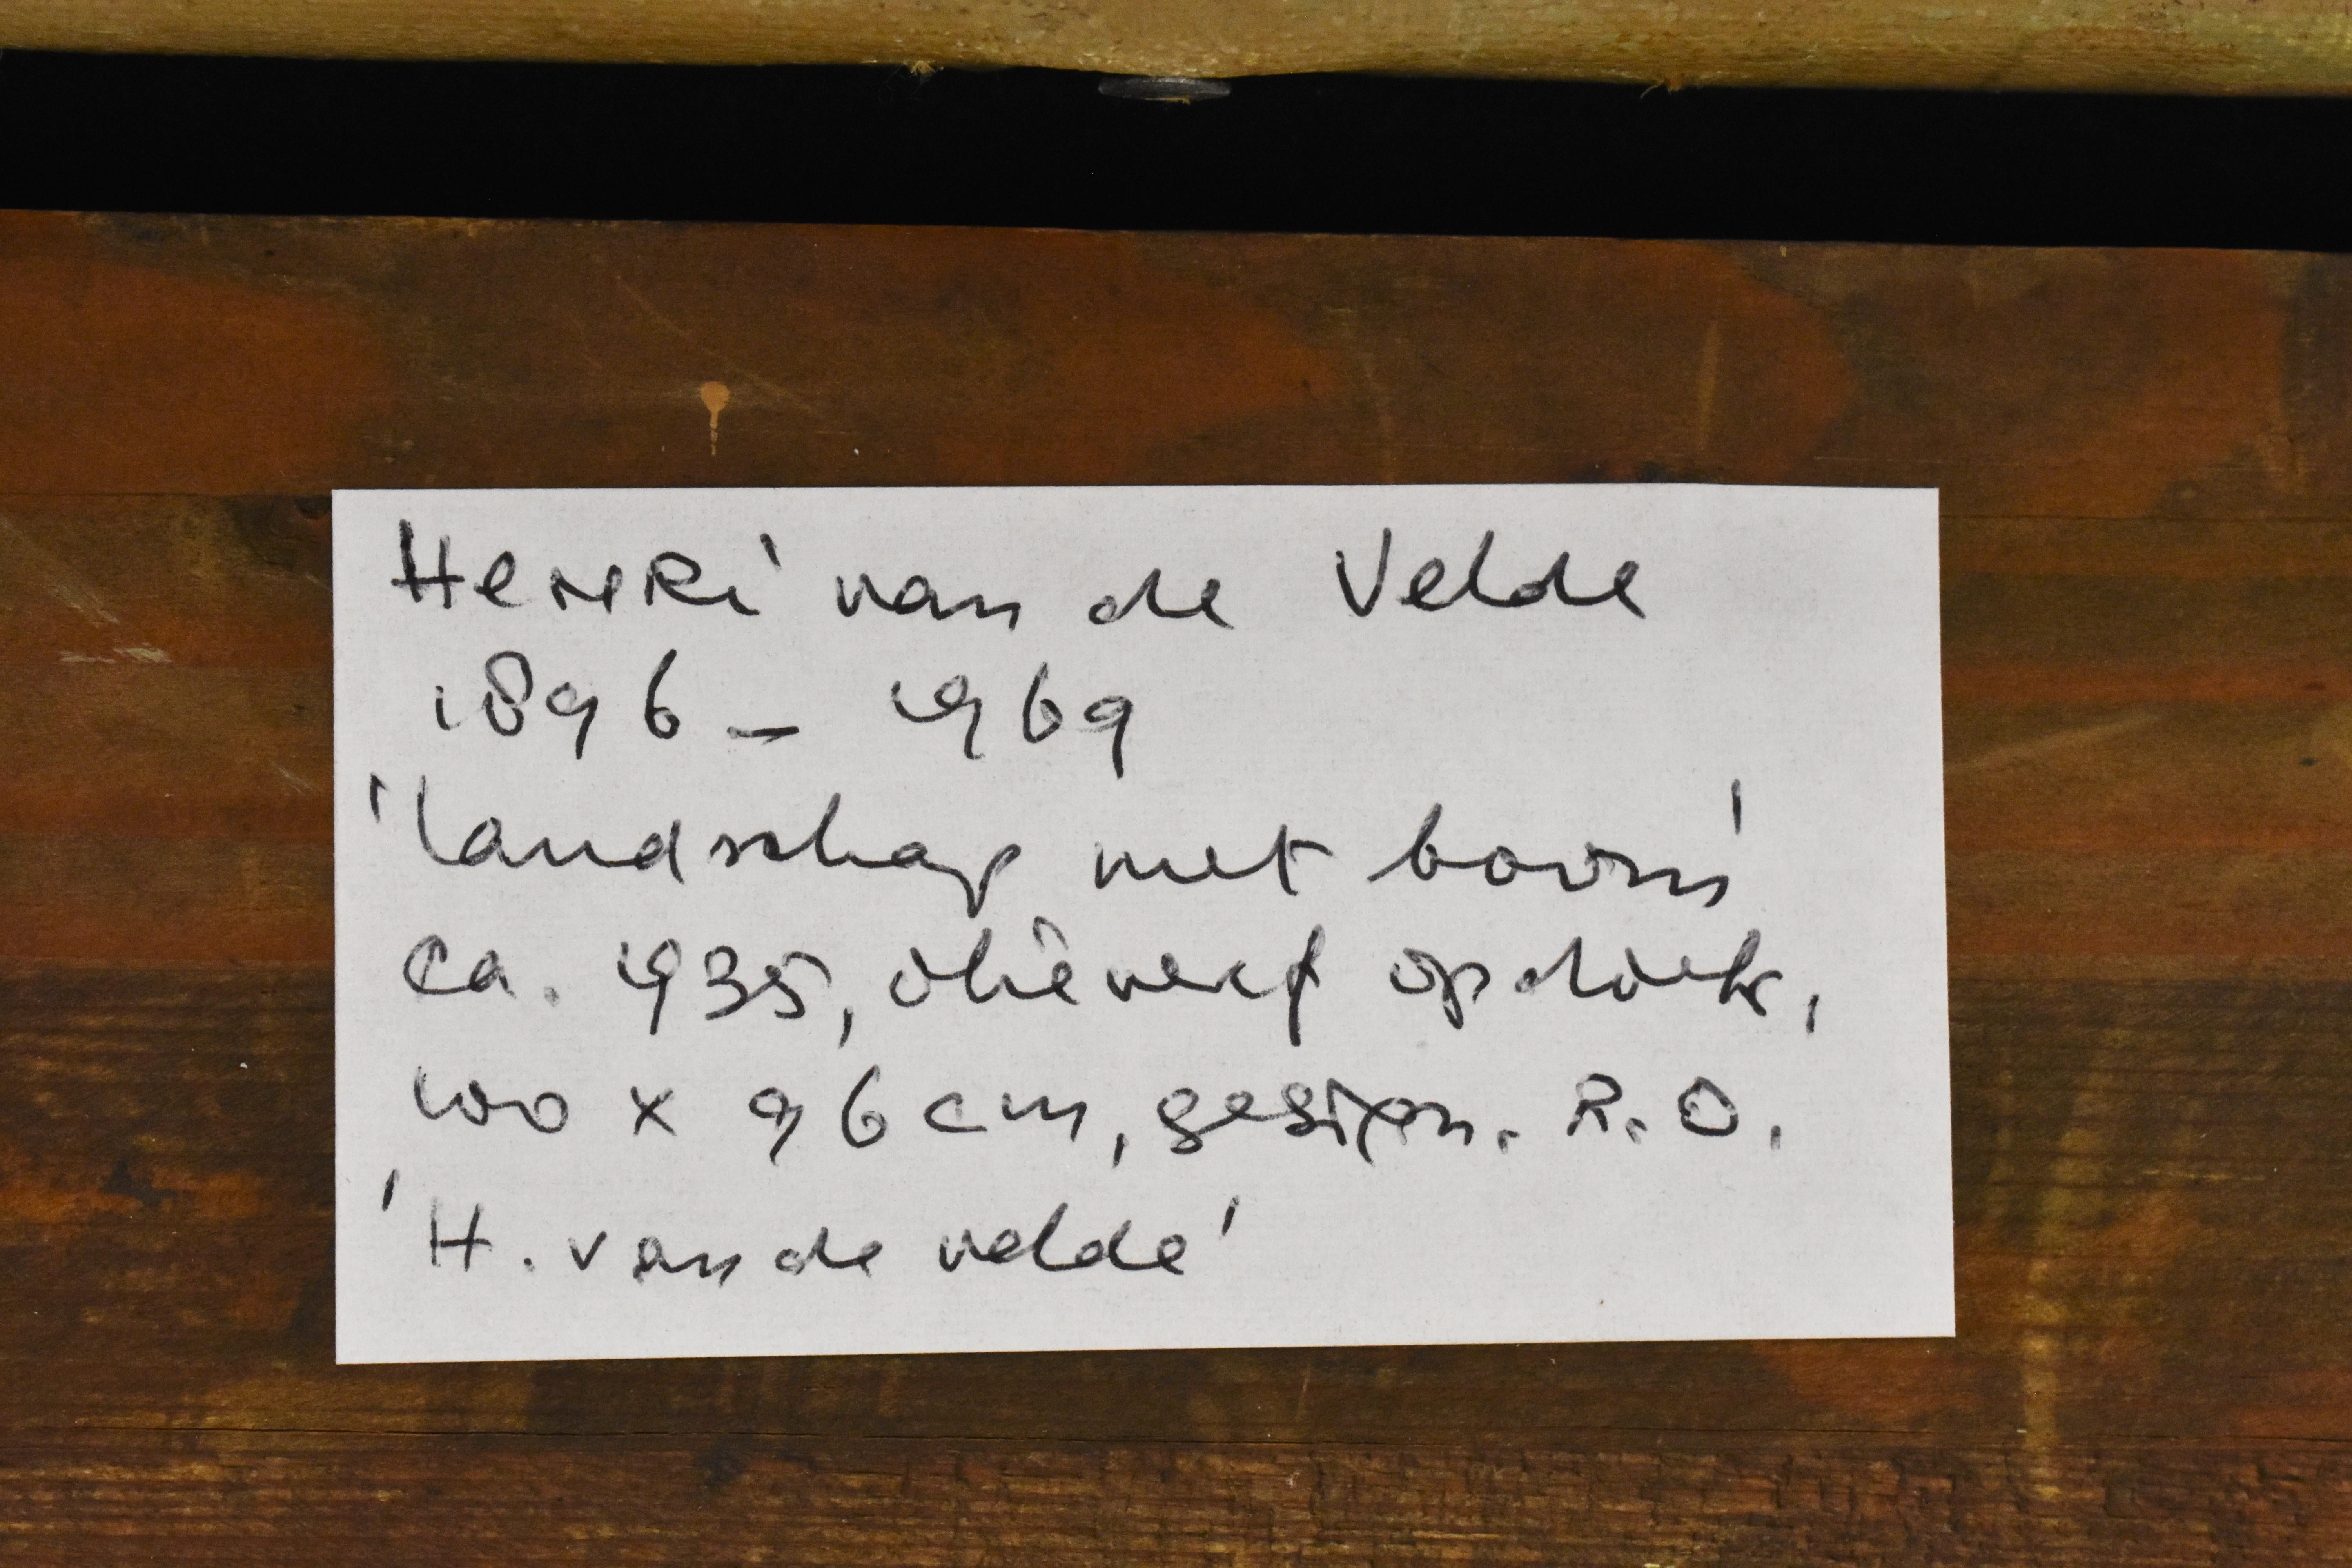 Henri van de Velde
1896 - 1969
'landschap met boom'
ca. 1935, olieverf op doek,
100 x 96 cm, gesign. R.O.
'H. van de velde'